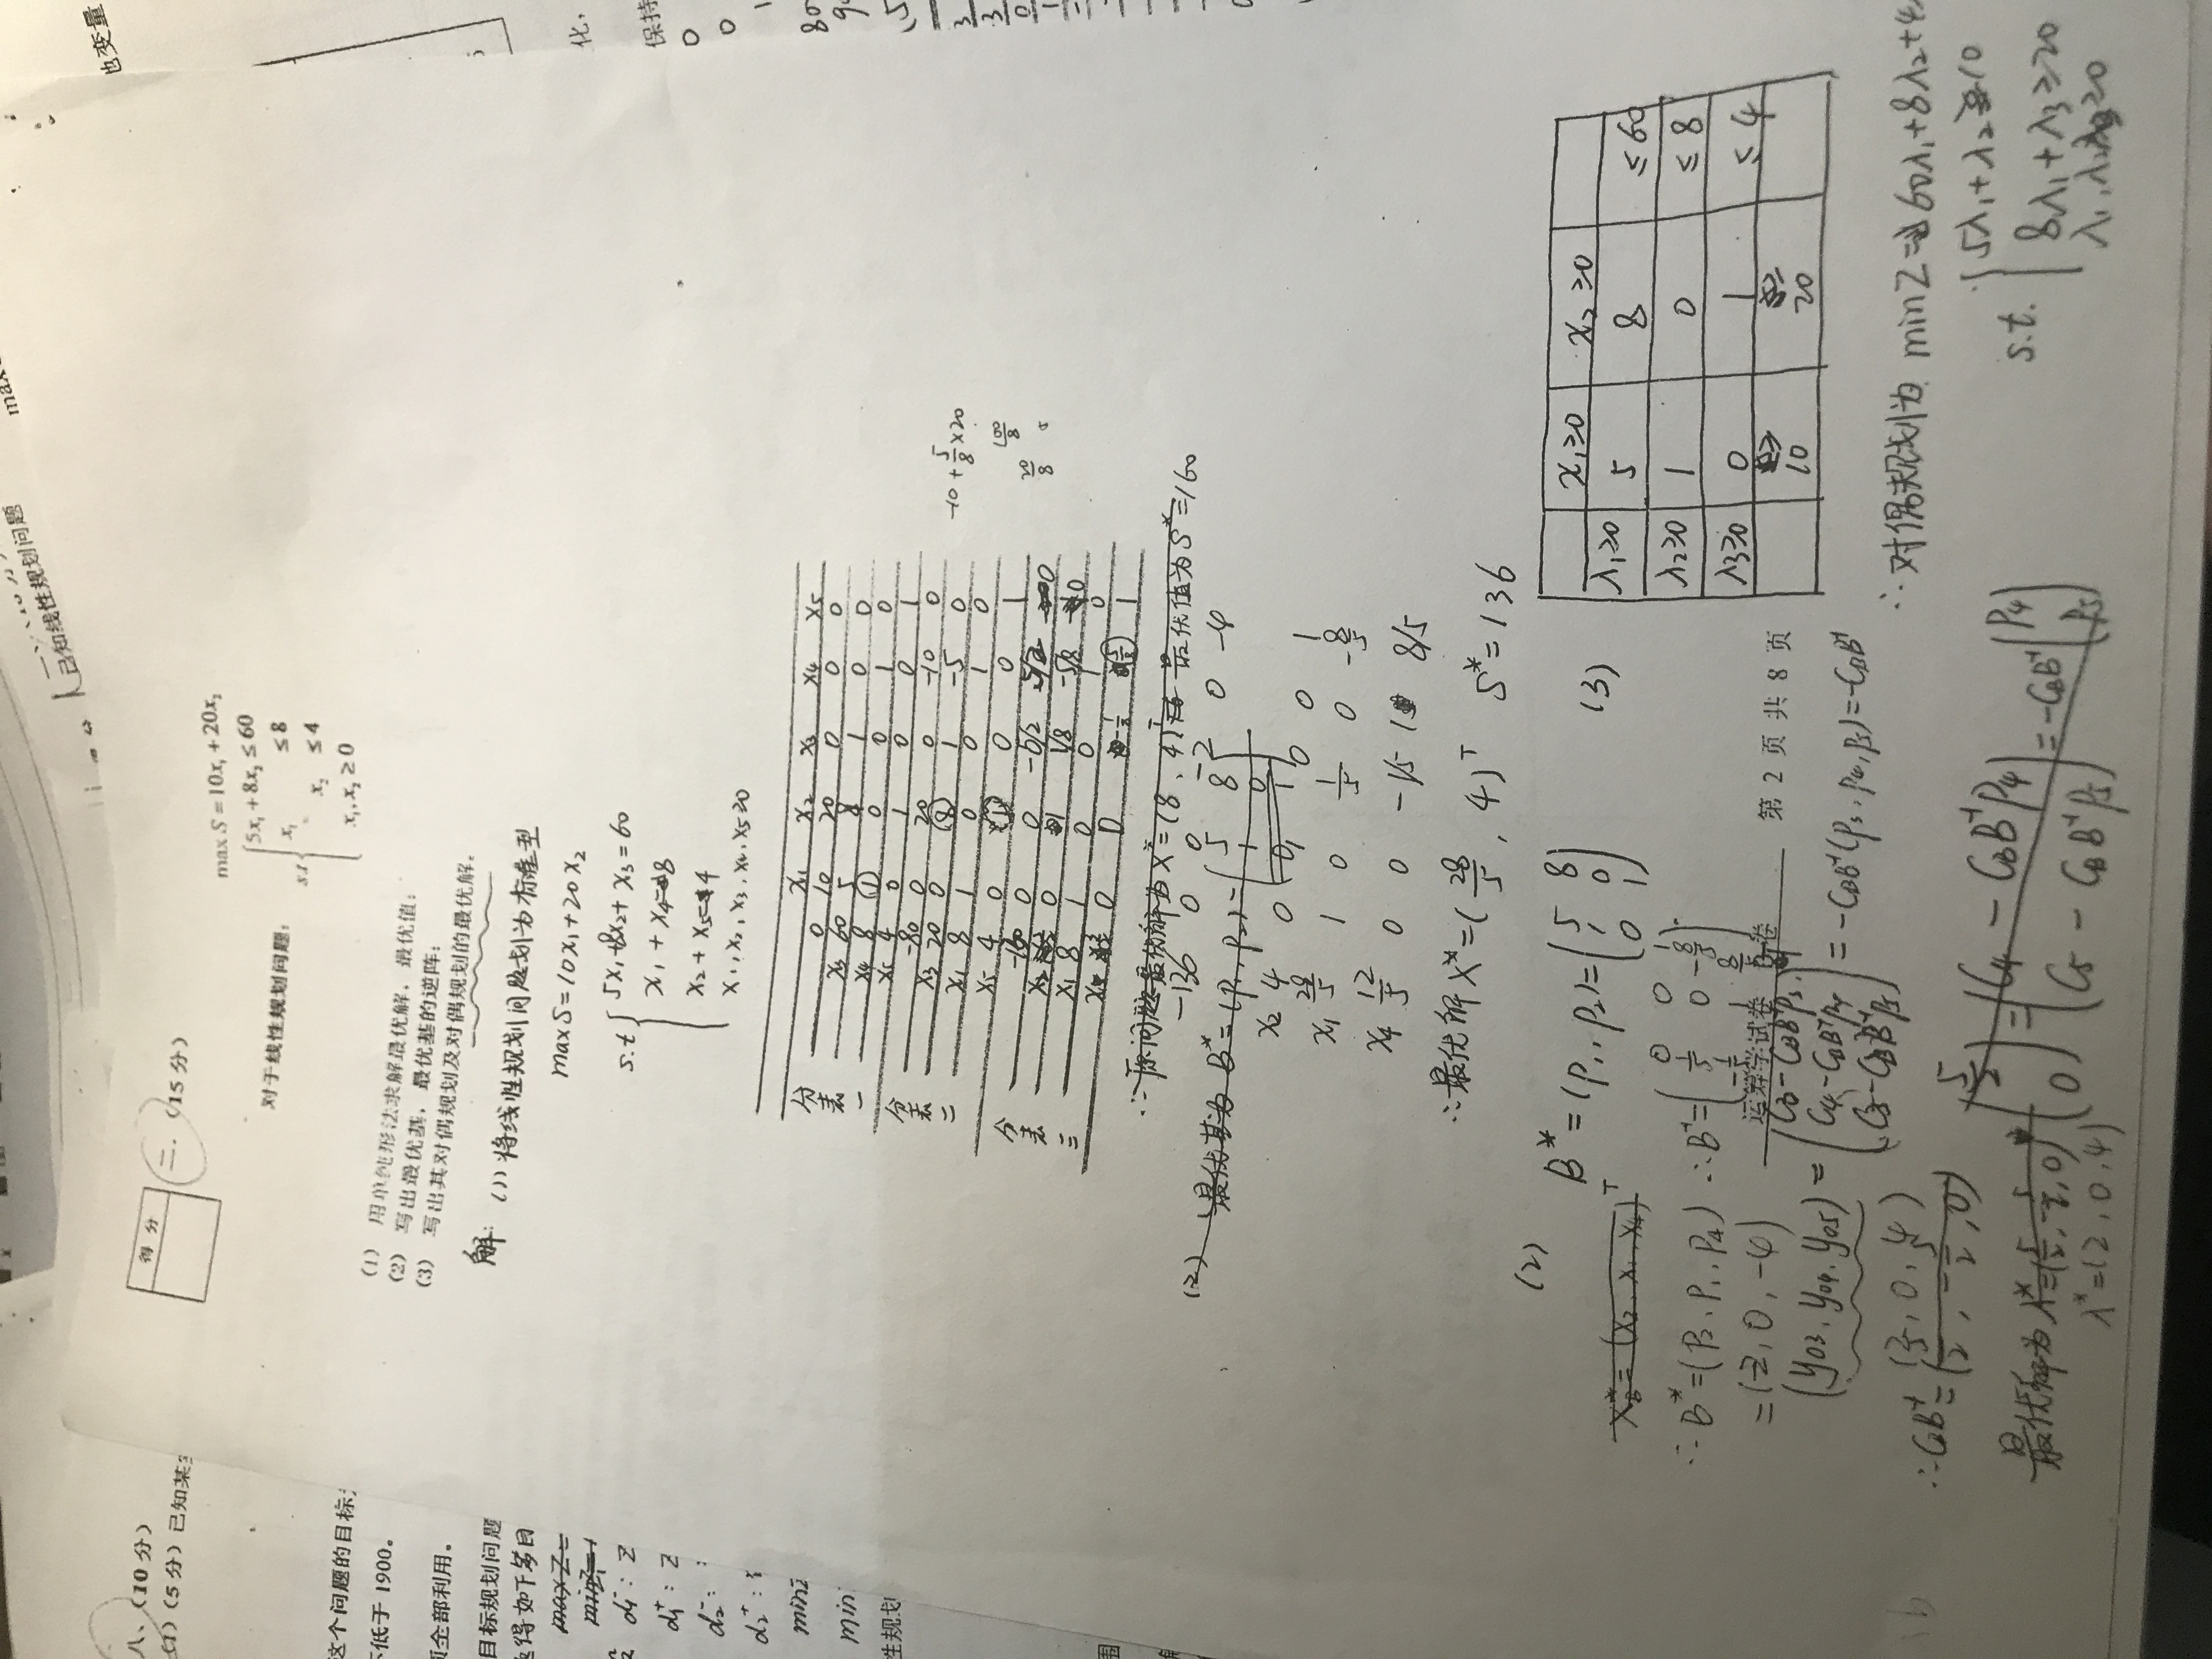 已知线性规划问题
max
地变量
八、(10 分)
(1)(5 分)已知某
这个问题的目标
不低于 1900。
全部利用。
目标规划问题
得如下多目
max Z=
min
d₁⁻: Z
d₁⁺: Z
d₂⁻:
d₂⁺:
min
min
性规划
得 分
二.(15 分)
max S = 10x₁ + 20x₂
对于线性规划问题:
s.t
5x₁ + 8x₂ ≤ 60
x₁ ≤ 8
x₂ ≤ 4
x₁, x₂ ≥ 0
(1) 用单纯形法求解最优解、最优值;
(2) 写出最优基,最优基的逆阵;
(3) 写出其对偶规划及对偶规划的最优解。
解: (1) 将线性规划问题划为标准型
max S = 10x₁ + 20x₂
s.t
5x₁ + 8x₂ + x₃ = 60
x₁ + x₄ = 8
x₂ + x₅ = 4
x₁, x₂, x₃, x₄, x₅ ≥ 0
x₁ x₂ x₃ x₄ x₅
分表一
0 10 20 0 0 0
x₃ 60 5 8 1 0 0
x₄ 8 1 0 0 1 0
x₅ 4 0 1 0 0 1
分表二
-80 0 20 0 -10 0
x₃ 20 0 8 1 -5 0
x₁ 8 1 0 0 1 0
x₅ 4 0 1 0 0 1
-10 + 5/8 × 20
100/8
20/8
分表三
-160 0 0 -5/2 5/2 0
x₂ 0 1 1/8 -5/8 0
x₁ 8 1 0 0 1 0
0 0 -1/8 5/8 1
∴ 原问题最优解为 X* = (8, 4)ᵀ 最优值为 S* = 160
-136 0 0 -2 0 -4
(2) 最优基为 B* = (P₁, P₂) =
5 8
1 0
0 1
x₂ 4 0 1 0 0 1
x₁ 28/5 1 0 1/5 0 -8/5
x₄ 12/5 0 0 -1/5 1 8/5
∴ 最优解 X* = (28/5, 4)ᵀ S* = 136
(2)
B* = (P₁, P₂) =
5 8
1 0
0 1
X_B* = (x₂, x₁, x₄)ᵀ
∴ B* = (P₂, P₁, P₄) ∴ B⁻¹ =
0 0 1
1/5 0 -8/5
-1/5 1 8/5
= (-2, 0, -4)
运筹学试卷 卷 第 2 页 共 8 页
(y₀₃, y₀₄, y₀₅) =
C₃ - C_B B⁻¹P₃
C₄ - C_B B⁻¹P₄
C₅ - C_B B⁻¹P₅
= -C_B B⁻¹(P₃, P₄, P₅) = -C_B B⁻¹
(2, 0, 4)
∴ C_B B⁻¹ = (5/2, -5/2, 0)
最优解为 λ* = (5/2, -5/2, 0)
λ* = (2, 0, 4)
5/2
0
=
C₄ - C_B B⁻¹P₄
C₅ - C_B B⁻¹P₅
= -C_B B⁻¹
P₄
P₅
(3)
x₁≥0 x₂≥0
λ₁≥0 5 8 ≤ 60
λ₂≥0 1 0 ≤ 8
λ₃≥0 0 1 ≤ 4
10 20
∴ 对偶规划为 min Z = 60λ₁ + 8λ₂ + 4
s.t.
5λ₁ + λ₂ ≥ 10
8λ₁ + λ₃ ≥ 20
λ₁, λ₂, λ₃ ≥ 0
化,
保持
0
0